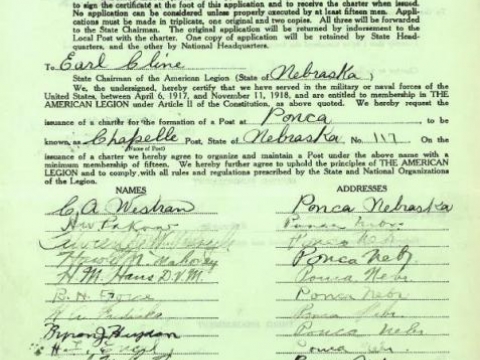 to sign the certificate at the foot of this application and to receive the charter when issued.
No application can be considered unless properly executed by at least fifteen men. Appli-
cations must be made in triplicate, one original and two copies. All three will be forwarded
to the State Chairman. The original application will be returned by indorsement to the
Local Post with the charter. One copy of application will be retained by State Head-
quarters, and the other by National Headquarters.
To Earl Cline
State Chairman of the American Legion (State of Nebraska)
We, the undersigned, hereby certify that we have served in the military or naval forces of the
United States, between April 6, 1917, and November 11, 1918, and are entitled to membership in THE
AMERICAN LEGION under Article II of the Constitution, as above quoted. We hereby request the
issuance of a charter for the formation of a Post at Ponca to be
known, as Chapelle Post, State of Nebraska No. 117 On the
(Name of Post)
issuance of a charter we hereby agree to organize and maintain a Post under the above name with a
minimum membership of fifteen. We hereby further agree to uphold the principles of THE AMERICAN
LEGION and to comply with all rules and regulations prescribed by the State and National Organizations
of the Legion.
NAMES ADDRESSES
C. A. Westran Ponca Nebraska
Ponca Nebr.
Ponca Nebr
Ponca Nebr
H. M. Hans D.V.M. Ponca Nebr
B. H. Ponca Nebr
Ponca Nebr
Byron J. Ponca Nebr
Ponca Nebr
Ponca